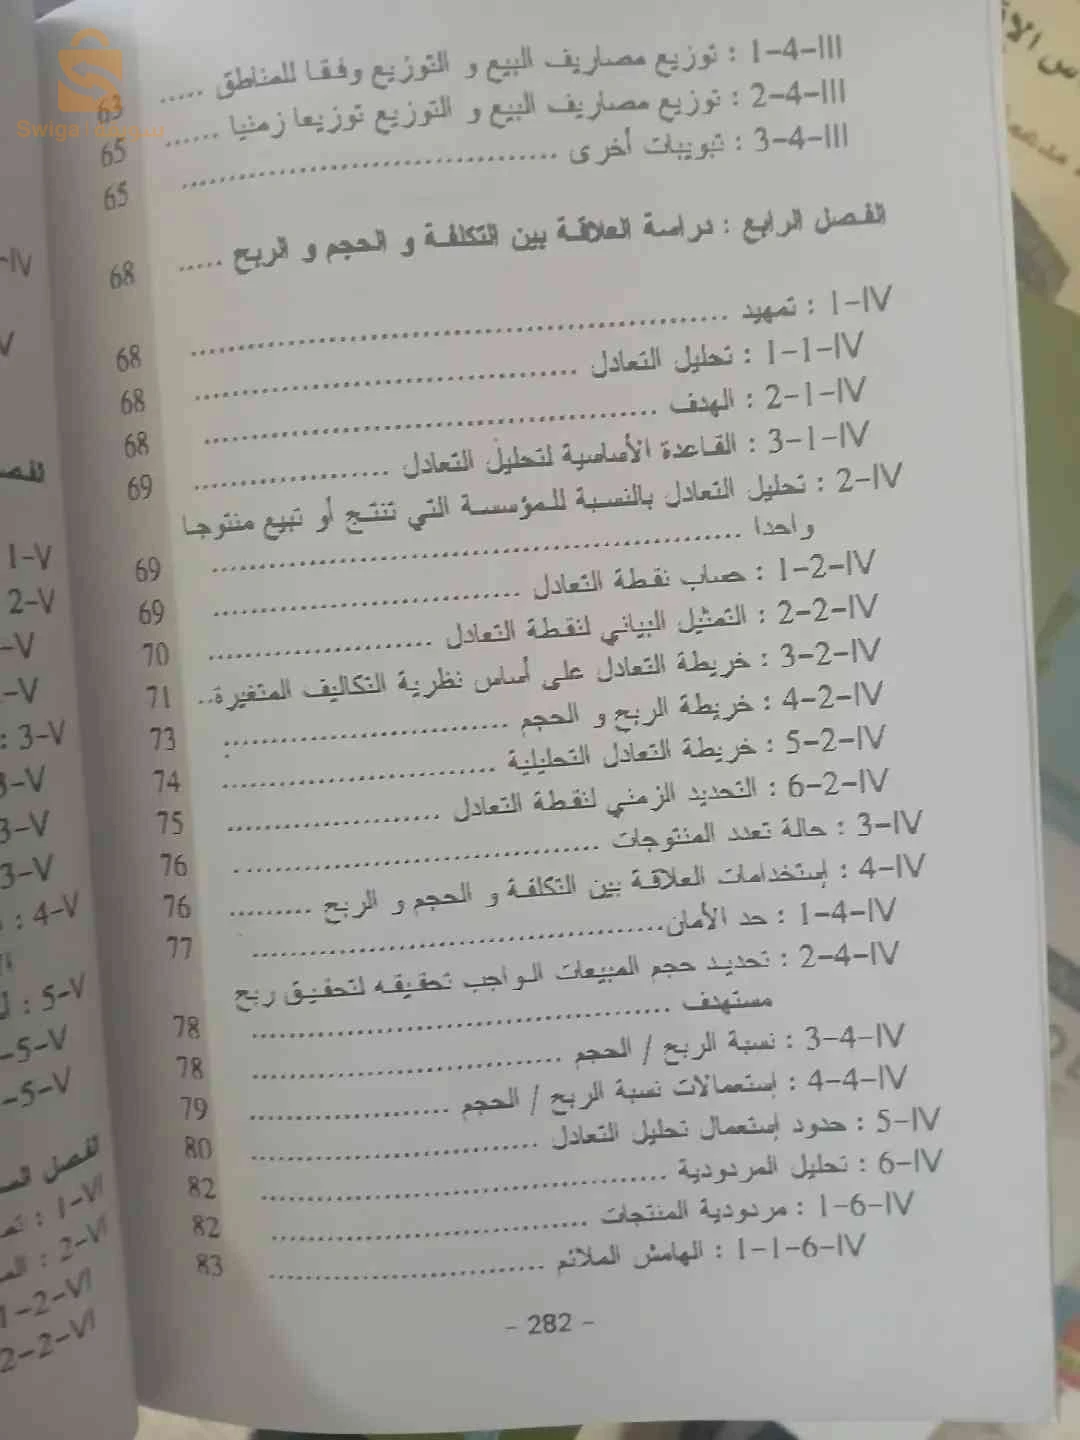 Swiga سويقة
III-4-1 : توزيع مصاريف البيع و التوزيع وفقا للمناطق ..... 63
III-4-2 : توزيع مصاريف البيع و التوزيع توزيعا زمنيا ...... 65
III-4-3 : تبويبات أخرى ................................ 65
الفصل الرابع : دراسة العلاقة بين التكلفة و الحجم و الربح ..... 68
IV-1 : تمهيد .............................................. 68
IV-1-1 : تحليل التعادل ................................. 68
IV-1-2 : الهدف ....................................... 68
IV-1-3 : القاعدة الأساسية لتحليل التعادل ................. 69
IV-2 : تحليل التعادل بالنسبة للمؤسسة التي تنتج أو تبيع منتوجا
واحدا ............................................. 69
IV-2-1 : حساب نقطة التعادل ........................... 69
IV-2-2 : التمثيل البياني لنقطة التعادل ................... 70
IV-2-3 : خريطة التعادل على أساس نظرية التكاليف المتغيرة.. 71
IV-2-4 : خريطة الربح و الحجم ......................... 73
IV-2-5 : خريطة التعادل التحليلية ........................ 74
IV-2-6 : التحديد الزمني لنقطة التعادل ................... 75
IV-3 : حالة تعدد المنتوجات ................................ 76
IV-4 : إستخدامات العلاقة بين التكلفة و الحجم و الربح ......... 76
IV-4-1 : حد الأمان..................................... 77
IV-4-2 : تحديد حجم المبيعات الواجب تحقيقه لتحقيق ربح
مستهدف ....................................... 78
IV-4-3 : نسبة الربح / الحجم ........................... 78
IV-4-4 : إستعمالات نسبة الربح / الحجم .................. 79
IV-5 : حدود إستعمال تحليل التعادل ......................... 80
IV-6 : تحليل المردودية .................................... 82
IV-6-1 : مردودية المنتجات ............................ 82
IV-6-1-1 : الهامش الملائم ........................ 83
- 282 -
V-1
V-2
V-3 :
V-4 :
V-5 :
VI-1 :
VI-2 :